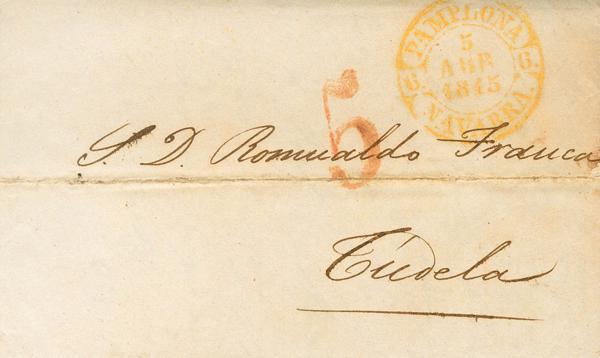 PAMPLONA
5
ABR
1845
6. 6.
NAVARRA.
5
S. D. Romualdo Franca
Túdela